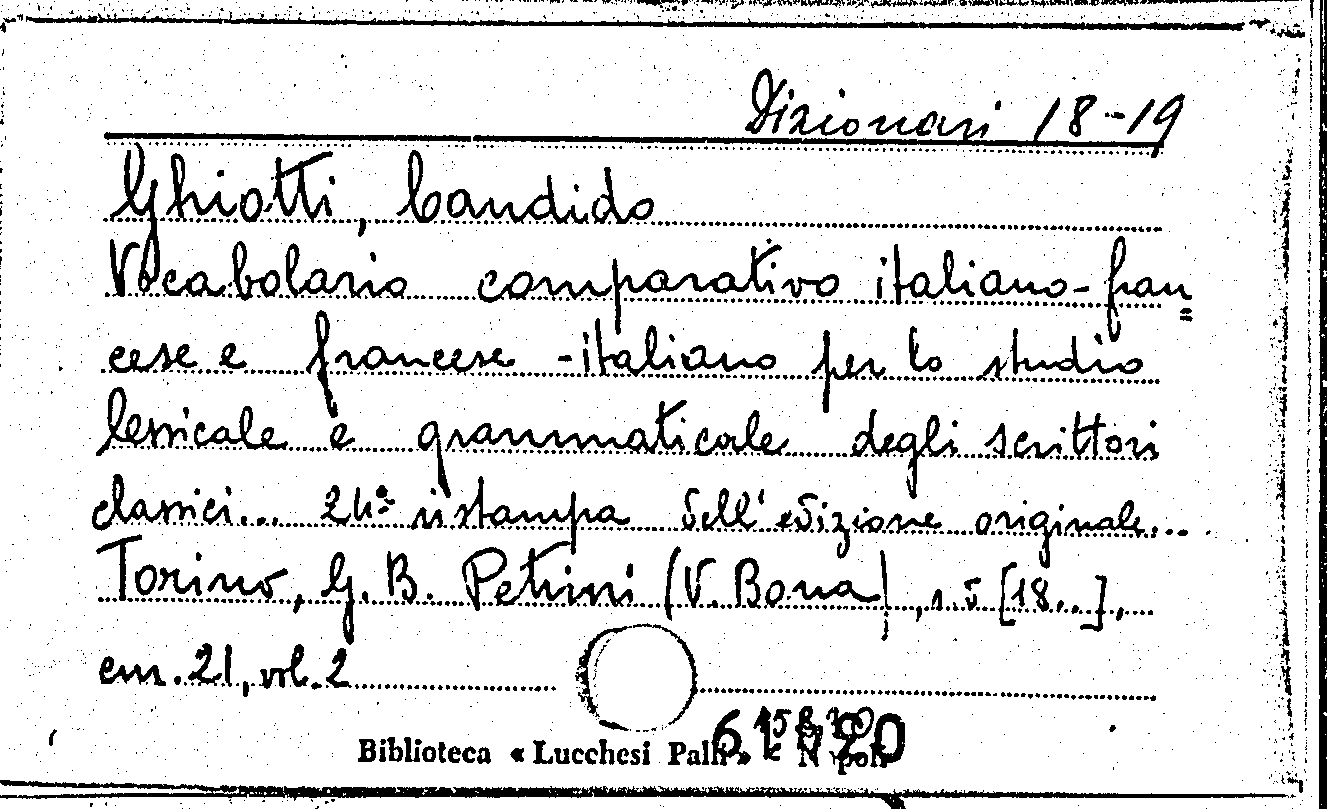 Dizionari 18-19
Ghiotti, Candido
Vocabolario comparativo italiano-fran=
cese e francese-italiano per lo studio
lessicale e grammaticale degli scrittori
classici... 24ª ristampa dell'edizione originale...
Torino, G. B. Petrini (V. Bona), s. d. [18..],
cm. 21, vol. 2
Biblioteca « Lucchesi Palli » Napoli